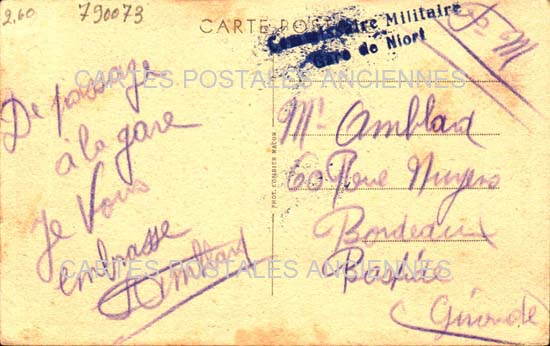 2,60
790073
CARTE POSTALE
Commissaire Militaire
Gare de Niort
F. M
CARTES POSTALES ANCIENNES
De passage
à la gare
je Vous
embrasse
Mr Amblard
60 Rue Nuyens
Bordeaux
Bastide
Gironde
PHOT. COMBIER MACON
CARTES POSTALES ANCIENNES